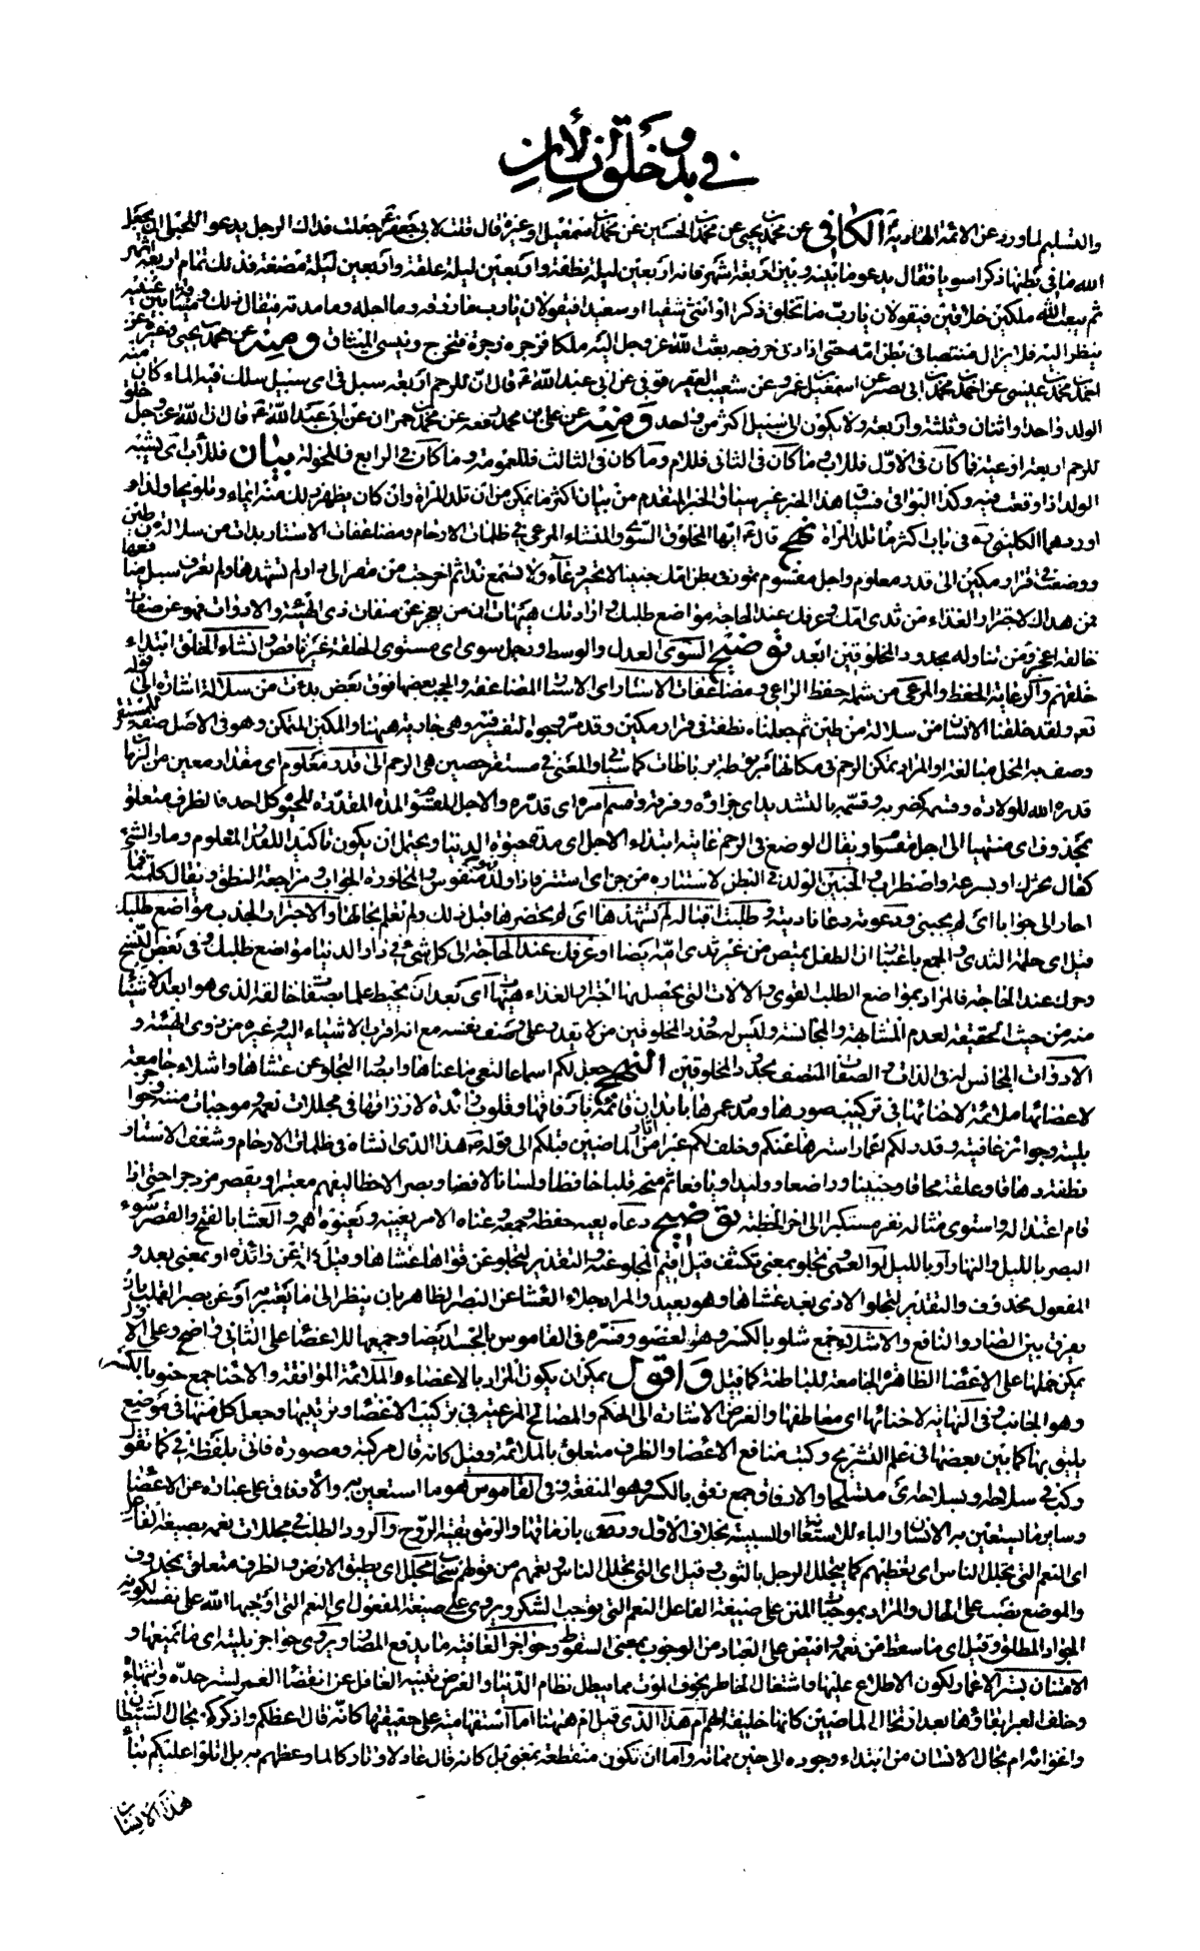 في بدو خلق الإنسان
والتسليم لما ورد عن الائمة الهادية الكافي عن محمد بن يحيى عن محمد بن الحسين عن محمد بن اسمعيل او غيره قال قلت لابي جعفر ع جعلت فداك الرجل يدعو للحبلى ان يجعل
الله ما في بطنها ذكرا سويا فقال يدعو ما بينه وبين اربعة اشهر فانه اربعين ليلة نطفة واربعين ليلة علقة واربعين ليلة مضغة فذلك تمام اربعة اشهر
ثم يبعث الله ملكين خلاقين فيقولان يا رب ما تخلق ذكرا او انثى شقيا او سعيدا فيقولان يا رب ما رزقه وما اجله وما مدته فيقال ذلك وميثاقه بين عينيه
ينظر اليه فلا يزال منتصبا في بطن امه حتى اذا دنى خروجه بعث الله عز وجل اليه ملكا فزجره زجرة فيخرج وينسى الميثاق ومنه عن محمد بن يحيى وغيره عن
احمد بن محمد بن عيسى عن احمد بن محمد بن ابي نصر عن اسمعيل بن عمرو عن شعيب العقرقوفي عن ابي عبد الله ع قال ان للرحم اربعة سبل في اي سبيل سلك فيه الماء كان منه
الولد واحد واثنان وثلثة واربعة ولا يكون الى سبيل اكثر من واحد ومنه عن علي بن محمد رفعه عن محمد بن حمران عن ابي عبد الله ع قال ان الله عز وجل خلق
للرحم اربعة اوعية فما كان في الاول فللاب وما كان في الثاني فللام وما كان في الثالث فللعمومة وما كان في الرابع فللخولة بيان فللاب اي يشبه
الولد اذا وقعت فيه وكذا البواقي فسياق هذا الخبر غير سياق الخبر المتقدم من بيان اكثر ما يمكن من ان تلد المراة وان كان يظهر ذلك منه ايماء وتلويحا ولذا
اوردهما الكليني ره في باب اكثر ما تلد المراة نهج قال ع ايها المخلوق السوي والمنشاء المرعي في ظلمات الارحام ومضاعفات الاستار بدات من سلالة من طين
ووضعت في قرار مكين الى قدر معلوم واجل مقسوم تمور في بطن امك جنينا لا تحير دعاء ولا تسمع نداء ثم اخرجت من مقرك الى دار لم تشهدها ولم تعرف سبل منافعها
فمن هداك لاجترار الغذاء من ثدي امك وعرفك عند الحاجة مواضع طلبك وارادتك هيهات ان من يعجز عن صفات ذي الهيئة والادوات فهو عن صفات
خالقه اعجز ومن تناوله بحدود المخلوقين ابعد توضيح السوي العدل والوسط ورجل سوي اي مستوي الخلقة غير ناقص وانشاء الخلق ابتداء
خلقهم والرعاية الحفظ والمرعي من شمله حفظ الراعي ومضاعفات الاستار اي الاستار المضاعفة والحجب بعضها فوق بعض بدئت من سلالة اشارة الى قوله
تع ولقد خلقنا الانسان من سلالة من طين ثم جعلناه نطفة في قرار مكين وقد مر وجوه لتفسيره وهي جارية ههنا والمكين المتمكن وهو في الاصل صفة للمستقر
وصف به المحل مبالغة او المراد تمكن الرحم في مكانها مربوطة برباطات كما سياتي والمعنى في مستقر حصين هي الرحم الى قدر معلوم اي مقدار معين من الزمان
قدره الله للولادة وقسمه كضربه وقسمه بالتشديد اي جزاه وفرقه وقسم امره اي قدره والاجل المقسوم المدة المقدرة للحيوة كل احد فالظرف متعلق
بمحذوف اي منتهيا الى اجل مقسوم او يقال الوضع في الرحم غايته ابتداء الاجل اي مدة حيوة الدنيا ويحتمل ان يكون تاكيدا للقدر المعلوم ومار الشئ
كقال تحرك او بسرعة واضطراب والجنين الولد في البطن لاستتاره من جن اي استتر فاذا ولد فهو منفوس والمحاورة الجواب ومراجعة النطق ويقال كلمته فما
احار الى جوابا اي لم يجبني ودعوته دعاء ناديته وطلبت اقباله لم تشهدها اي لم تحضرها قبل ذلك ولم تعلم بحالها والاجترار الجذب مواضع طلبك
قيل اي حلمة الثدي والجمع باعتبار ان الطفل يمتص من غير ثدي امه ايضا او عرفك عند الحاجة الى كل شئ في دار الدنيا مواضع طلبك وفي بعض النسخ
وحرك عند الحاجة فالمراد بمواضع الطلب القوى والالات التي يحصل بها اجترار الغذاء هيهات اي بعد ان يحيط علما بصفات خالقه الذي هو ابعد الاشياء
منه من حيث الحقيقة لعدم المشابهة والمجانسة وليس له حدود المخلوقين من لا يقدر على وصف نفسه مع انه اقرب الاشياء اليه وغيره من ذوي الهيئة و
الادوات المجانس له في الذات والصفات المتصف بحدود المخلوقين النهج جعل لكم اسماعا لتعي ما عناها وابصارا لتجلو عن عشاها واشلاء جامعة
لاعضائها ملائمة لاحنائها في تركيب صورها ومدد عمرها بابدان قائمة بارفاقها وقلوب رائدة لارزاقها في مجللات نعمه وموجبات مننه وحواجز
بليته وجوائز عافيته وقدر لكم اعمارا سترها عنكم وخلف لكم عبرا من اثار الماضين قبلكم الى قوله ص ام هذا الذي انشاه في ظلمات الارحام وشغف الاستار
نطفة دهاقا وعلقة محاقا وجنينا وراضعا ووليدا ويافعا ثم منحه قلبا حافظا ولسانا لافظا وبصرا لاحظا ليفهم معتبرا ويقصر مزدجرا حتى اذا
قام اعتداله واستوى مثاله نفر مستكبرا الى اخر الخطبة توضيح وعاه يعيه حفظه وجمعه وعناه الامر يعنيه ويعنوه اهمه والعشا بالفتح والقصر سوء
البصر بالليل والنهار او بالليل او العمى وتجلو بمعنى تكشف قيل اقيم المجلو عنه والتقدير لتجلو عن قواها عشاها وقيل لان عن زائدة او بمعنى بعد و
المفعول محذوف والتقدير لتجلو الاذى بعد عشاها وهو بعيد والمراد بجلاء العشا عن البصر الظاهر بان ينظر الى ما يعتبر به او عن بصر القلب بان
يفرق بين الضار والنافع والاشلاء جمع شلو بالكسر وهو العضو وفسره في القاموس بالجسد ايضا وجمعها للاعضاء على الثاني واضح وعلى الاول
يمكن حملها على الاعضاء الظاهرة الجامعة للباطنة كما قيل واقول يمكن ان يكون المراد بالاعضاء والملائمة الموافقة والاحناء جمع حنو بالكسر
وهو الجانب وفي النهاية لاحنائها اي معاطفها والغرض الاشارة الى الحكم والمصالح المرعية في تركيب الاعضاء وترتيبها وجعل كل منها في موضع
يليق بها كما بين بعضها في علم التشريح وكتب منافع الاعضاء والظرف متعلق بالملائمة وقيل كانه قال مركبة ومصورة فاتى بلفظة في كما تقول
ركب في سلاحه وبسلاحه اي متسلحا والارفاق جمع رفق بالكسر وهو المنفعة وفي القاموس هو ما استعين به والارفاق على عبارة عن الاعضاء
وسائر ما يستعين به الانسان والباء للاستعانة او السببية بخلاف الاول وروي بارماقها والرمق بقية الروح والرود الطلب في مجللات نعمه بصيغة الفاعل
اي النعم التي تجلل الناس اي تغطيهم كما يتجلل الرجل بالثوب وقيل اي التي تجلل الناس وتعمهم من قولهم سحاب مجلل اي يطبق الارض والظرف متعلق بمحذوف
والموضع نصب على الحال والمراد بموجبات المنن على صيغة الفاعل النعم التي توجب الشكر ويروى على صيغة المفعول اي النعم التي اوجبها الله على نفسه لكونه
الجواد المطلق وقيل اي ما سقط من نعمه وافيض على العباد من الوجوب بمعنى السقوط وحواجز العافية ما يدفع المضار ويروى حواجز بليته اي ما تمنعها و
الامتنان بستر الاعمار لكون الاطلاع عليها واشتغال الخاطر بخوف الموت مما يبطل نظام الدنيا والغرض تنبيه الغافل عن انقضاء العمر لستر حده وانتهاء
وخلف العبر ابقاؤها بعد ارتحال الماضين كانها خليفة لهم ام هذا الذي قيل ام ههنا اما استفهامية على حقيقتها كانه قال اعظكم واذكركم بحال الشيطان
واغوائه ام بحال الانسان من ابتداء وجوده الى حين مماته واما ان تكون منقطعة بمعنى بل كانه قال عادلا وتاركا لما وعظهم به بل اتلو عليكم نبا
هذا الانسان